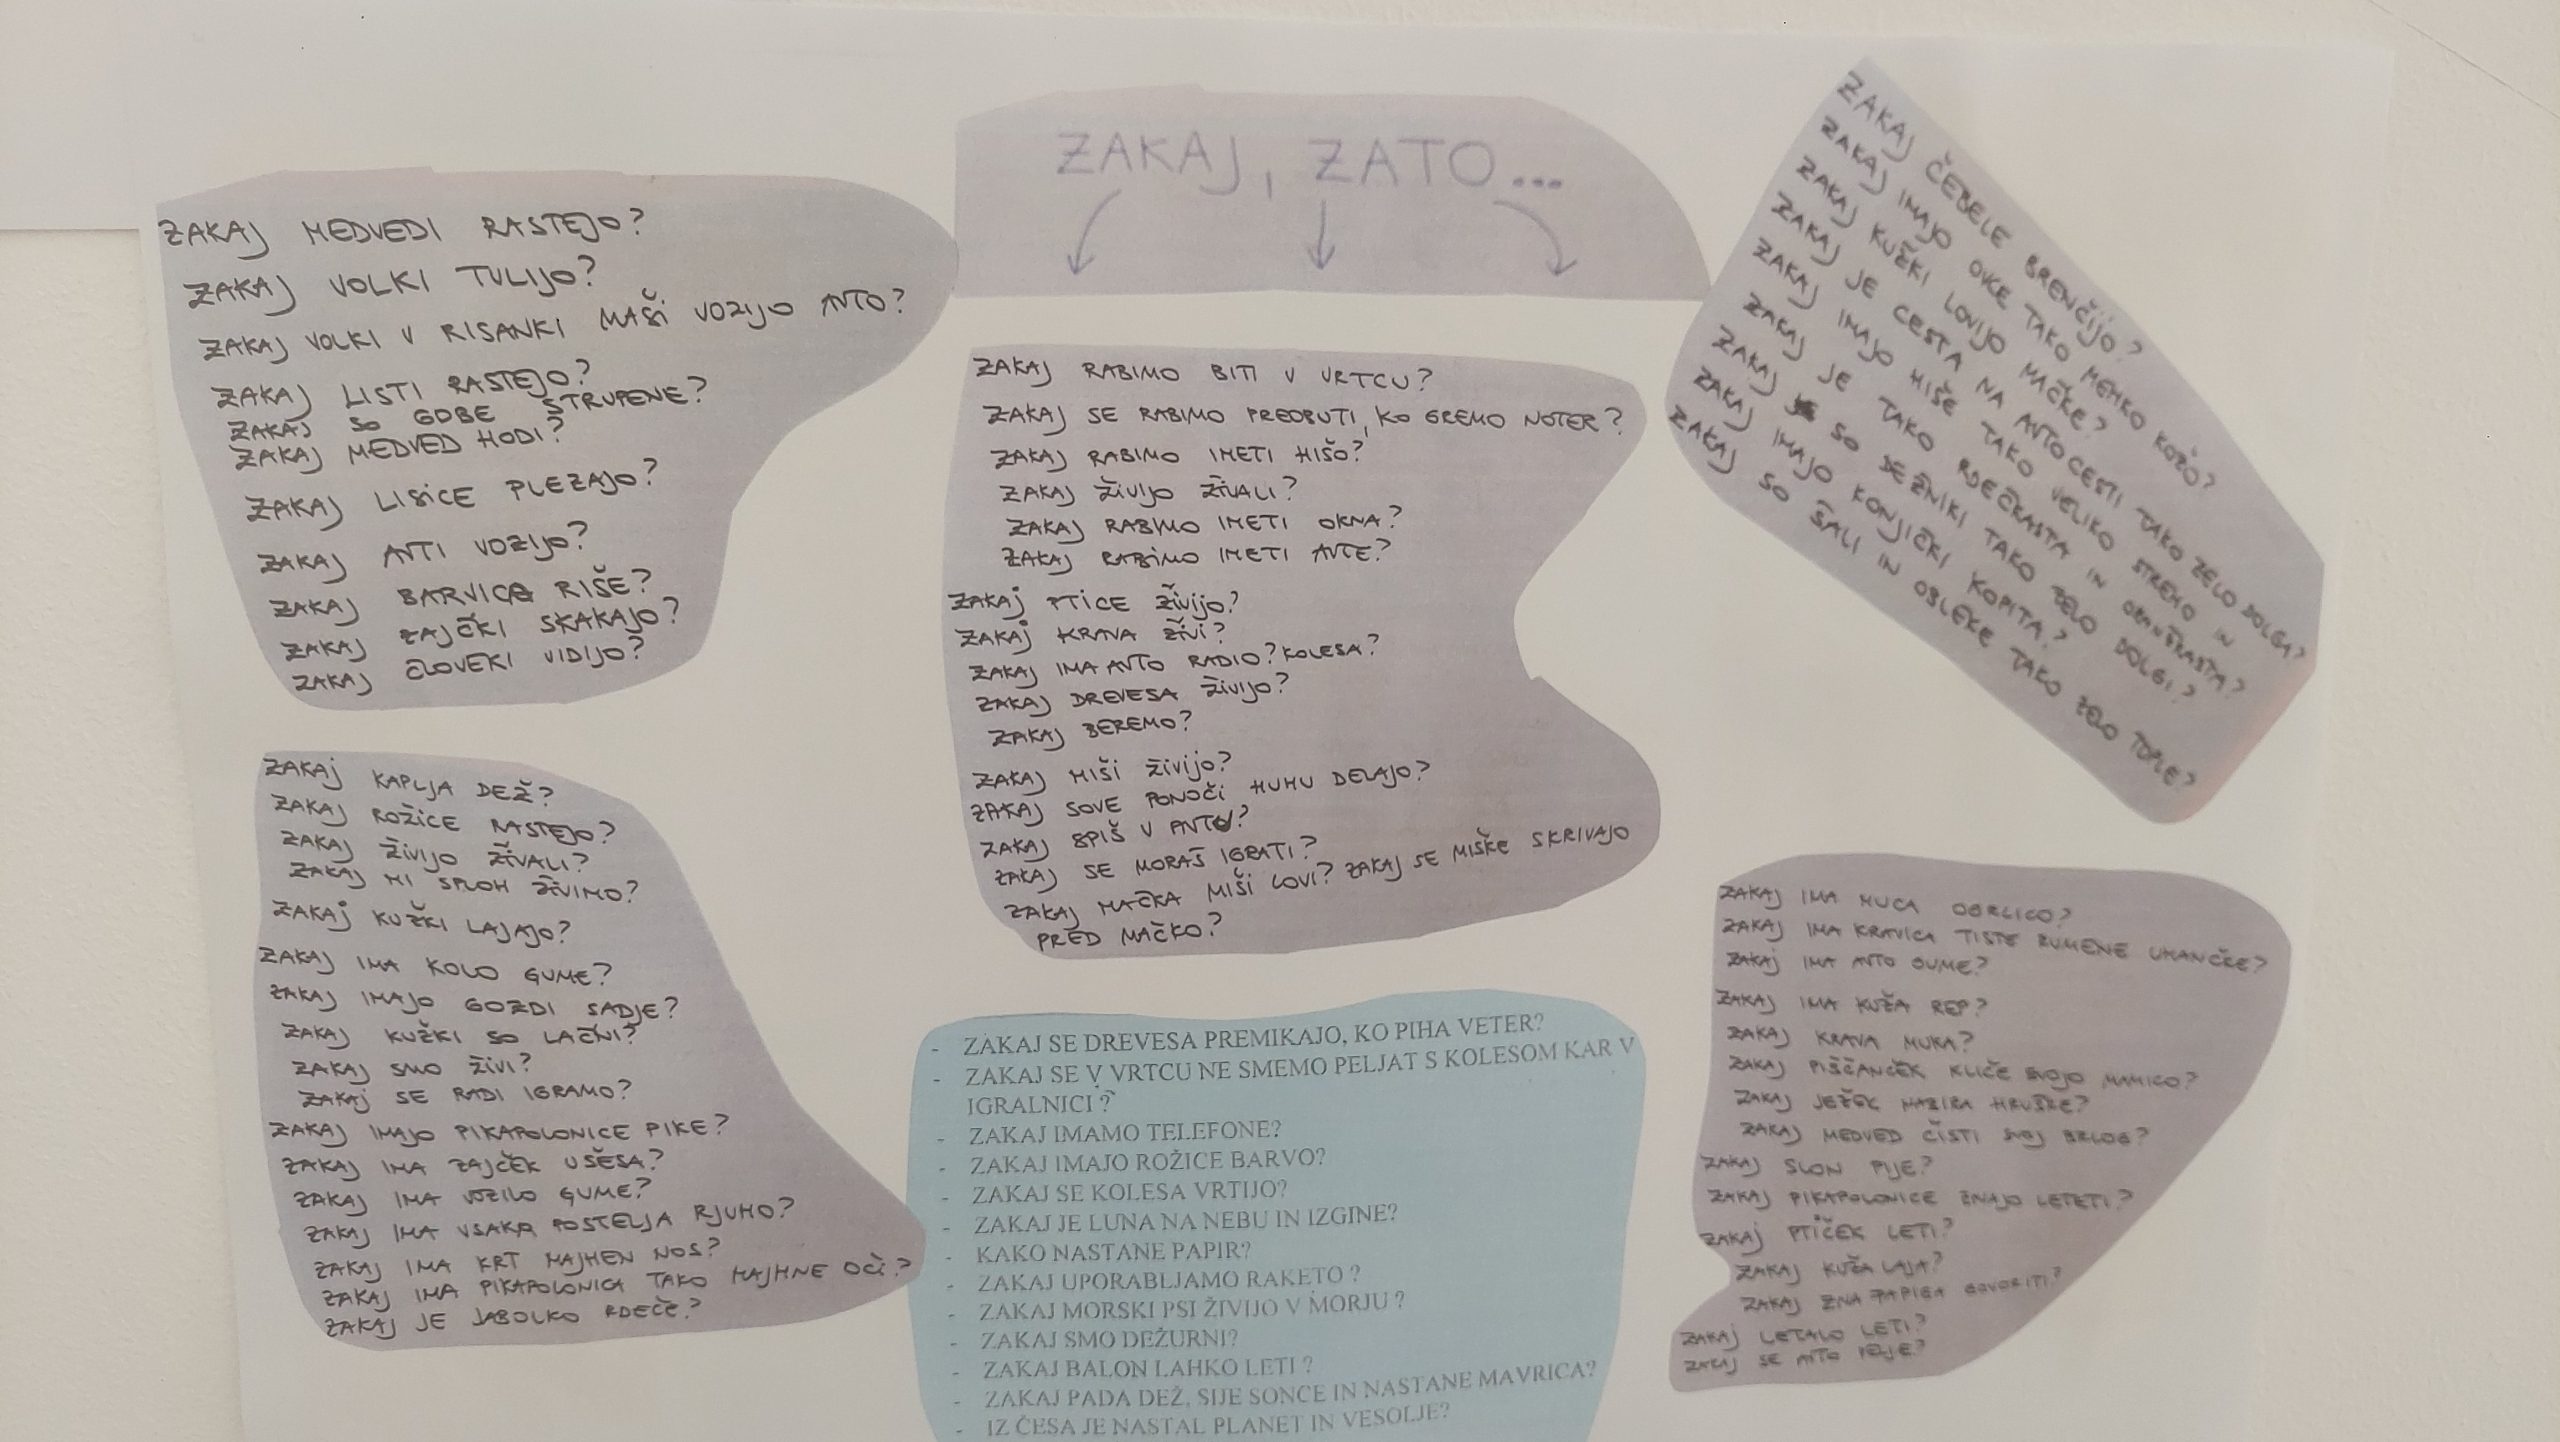 ZAKAJ, ZATO...
ZAKAJ MEDVEDI RASTEJO?
ZAKAJ VOLKI TULIJO?
ZAKAJ VOLKI V RISANKI MAŠI VOZIJO AVTO?
ZAKAJ LISTI RASTEJO?
ZAKAJ SO GOBE STRUPENE?
ZAKAJ MEDVED HODI?
ZAKAJ LISICE PLEZAJO?
ZAKAJ AVTI VOZIJO?
ZAKAJ BARVICA RIŠE?
ZAKAJ ZAJČKI SKAKAJO?
ZAKAJ ČLOVEKI VIDIJO?
ZAKAJ KAPLJA DEŽ?
ZAKAJ ROŽICE RASTEJO?
ZAKAJ ŽIVIJO ŽIVALI?
ZAKAJ MI SPLOH ŽIVIMO?
ZAKAJ KUŽKI LAJAJO?
ZAKAJ IMA KOLO GUME?
ZAKAJ IMAJO GOZDI SADJE?
ZAKAJ KUŽKI SO LAČNI?
ZAKAJ SMO ŽIVI?
ZAKAJ SE RADI IGRAMO?
ZAKAJ IMAJO PIKAPOLONICE PIKE?
ZAKAJ IMA ZAJČEK UŠESA?
ZAKAJ IMA VOZILO GUME?
ZAKAJ IMA VSAKA POSTELJA RJUHO?
ZAKAJ IMA KRT MAJHEN NOS?
ZAKAJ IMA PIKAPOLONICA TAKO MAJHNE OČI?
ZAKAJ JE JABOLKO RDEČE?
ZAKAJ RABIMO BITI V VRTCU?
ZAKAJ SE RABIMO PREOBUTI, KO GREMO NOTER?
ZAKAJ RABIMO IMETI HIŠO?
ZAKAJ ŽIVIJO ŽIVALI?
ZAKAJ RABIMO IMETI OKNA?
ZAKAJ RABIMO IMETI AVTE?
ZAKAJ PTICE ŽIVIJO?
ZAKAJ KRAVA ŽIVI?
ZAKAJ IMA AVTO RADIO? KOLESA?
ZAKAJ DREVESA ŽIVIJO?
ZAKAJ BEREMO?
ZAKAJ MIŠI ŽIVIJO?
ZAKAJ SOVE PONOČI HUHU DELAJO?
ZAKAJ SPIŠ V AVTU?
ZAKAJ SE MORAŠ IGRATI?
ZAKAJ MAČKA MIŠI LOVI? ZAKAJ SE MIŠKE SKRIVAJO
PRED MAČKO?
- ZAKAJ SE DREVESA PREMIKAJO, KO PIHA VETER?
- ZAKAJ SE V VRTCU NE SMEMO PELJAT S KOLESOM KAR V
IGRALNICI ?
- ZAKAJ IMAMO TELEFONE?
- ZAKAJ IMAJO ROŽICE BARVO?
- ZAKAJ SE KOLESA VRTIJO?
- ZAKAJ JE LUNA NA NEBU IN IZGINE?
- KAKO NASTANE PAPIR?
- ZAKAJ UPORABLJAMO RAKETO ?
- ZAKAJ MORSKI PSI ŽIVIJO V MORJU ?
- ZAKAJ SMO DEŽURNI?
- ZAKAJ BALON LAHKO LETI ?
- ZAKAJ PADA DEŽ, SIJE SONCE IN NASTANE MAVRICA?
- IZ ČESA JE NASTAL PLANET IN VESOLJE?
ZAKAJ ČEBELE BRENČIJO?
ZAKAJ IMAJO OVCE TAKO MEHKO KOŽO?
ZAKAJ KUŽKI LOVIJO MAČKE?
ZAKAJ JE CESTA NA AVTOCESTI TAKO ZELO DOLGA?
ZAKAJ IMAJO HIŠE TAKO VELIKO STREHO IN
ZAKAJ JE TAKO RDEČKASTA IN ORANŽKASTA?
ZAKAJ SO DEŽNIKI TAKO ZELO DOLGI?
ZAKAJ IMAJO KONJIČKI KOPITA?
ZAKAJ SO ŠALI IN OBLEKE TAKO ZELO TOPLE?
ZAKAJ IMA MUCA OGRLICO?
ZAKAJ IMA KRAVICA TISTE RUMENE UHANČKE?
ZAKAJ IMA AVTO GUME?
ZAKAJ IMA KUŽA REP?
ZAKAJ KRAVA MUKA?
ZAKAJ PIŠČANČEK KLIČE SVOJO MAMICO?
ZAKAJ JEŽEK NABIRA HRUŠKE?
ZAKAJ MEDVED ČISTI SVOJ BRLOG?
ZAKAJ SLON PIJE?
ZAKAJ PIKAPOLONICE ZNAJO LETETI?
ZAKAJ PTIČEK LETI?
ZAKAJ KUŽA LAJA?
ZAKAJ ZNA PAPIGA GOVORITI?
ZAKAJ LETALO LETI?
ZAKAJ SE AVTO PELJE?